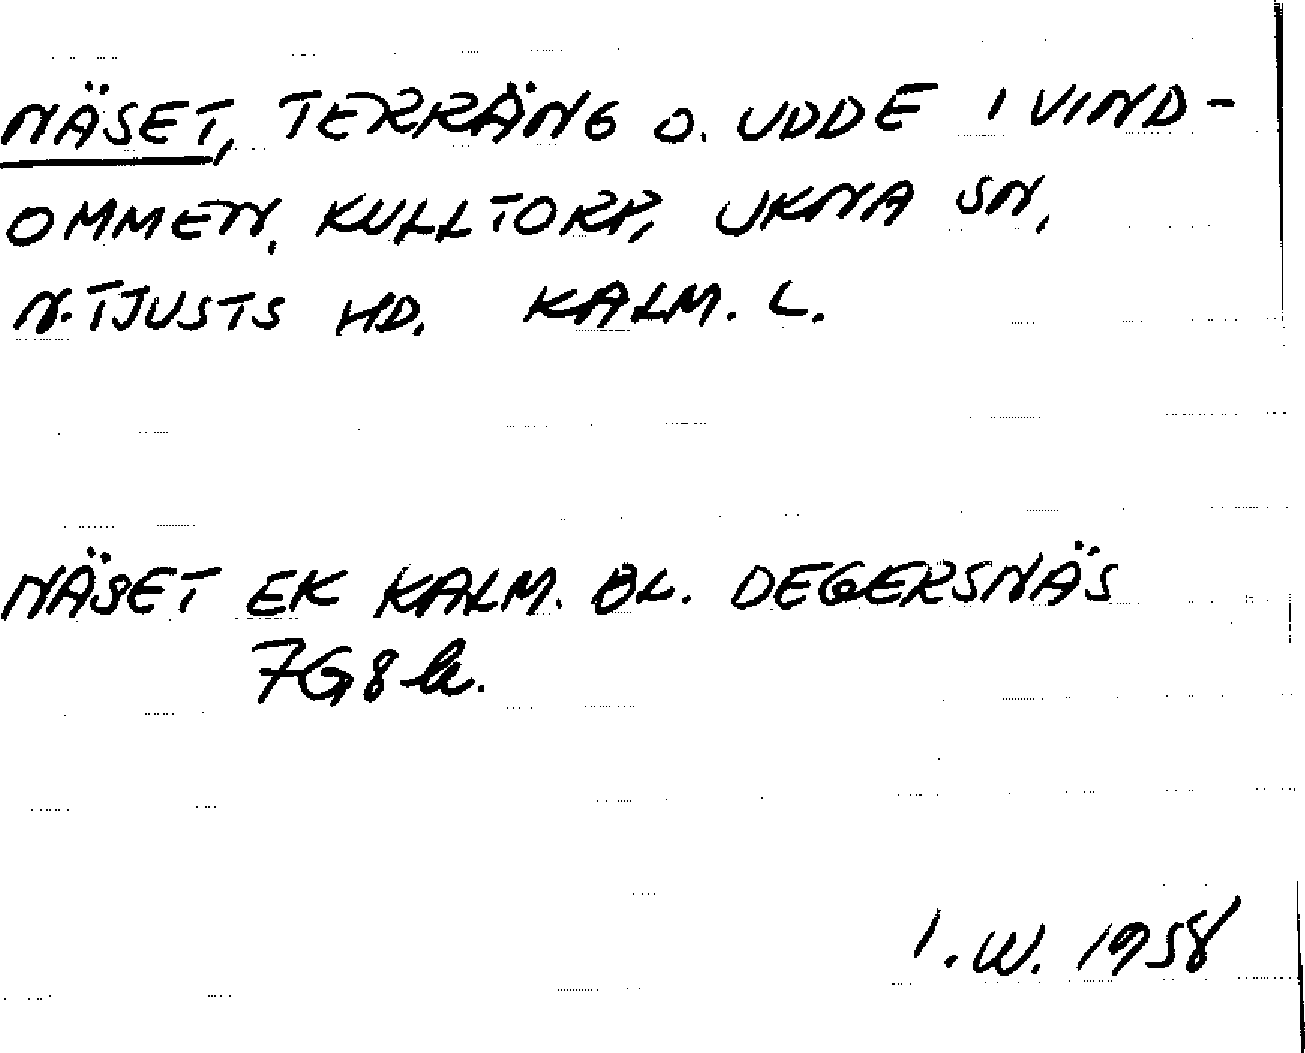 NÄSET, TERRÄNG O. UDDE I VIND-
OMMEN, KULLTORP, UKNA SN,
N. TJUSTS HD. KALM. L.
NÄSET EK KALM. BL. DEGERSNÄS
7G8h.
I. W. 1958